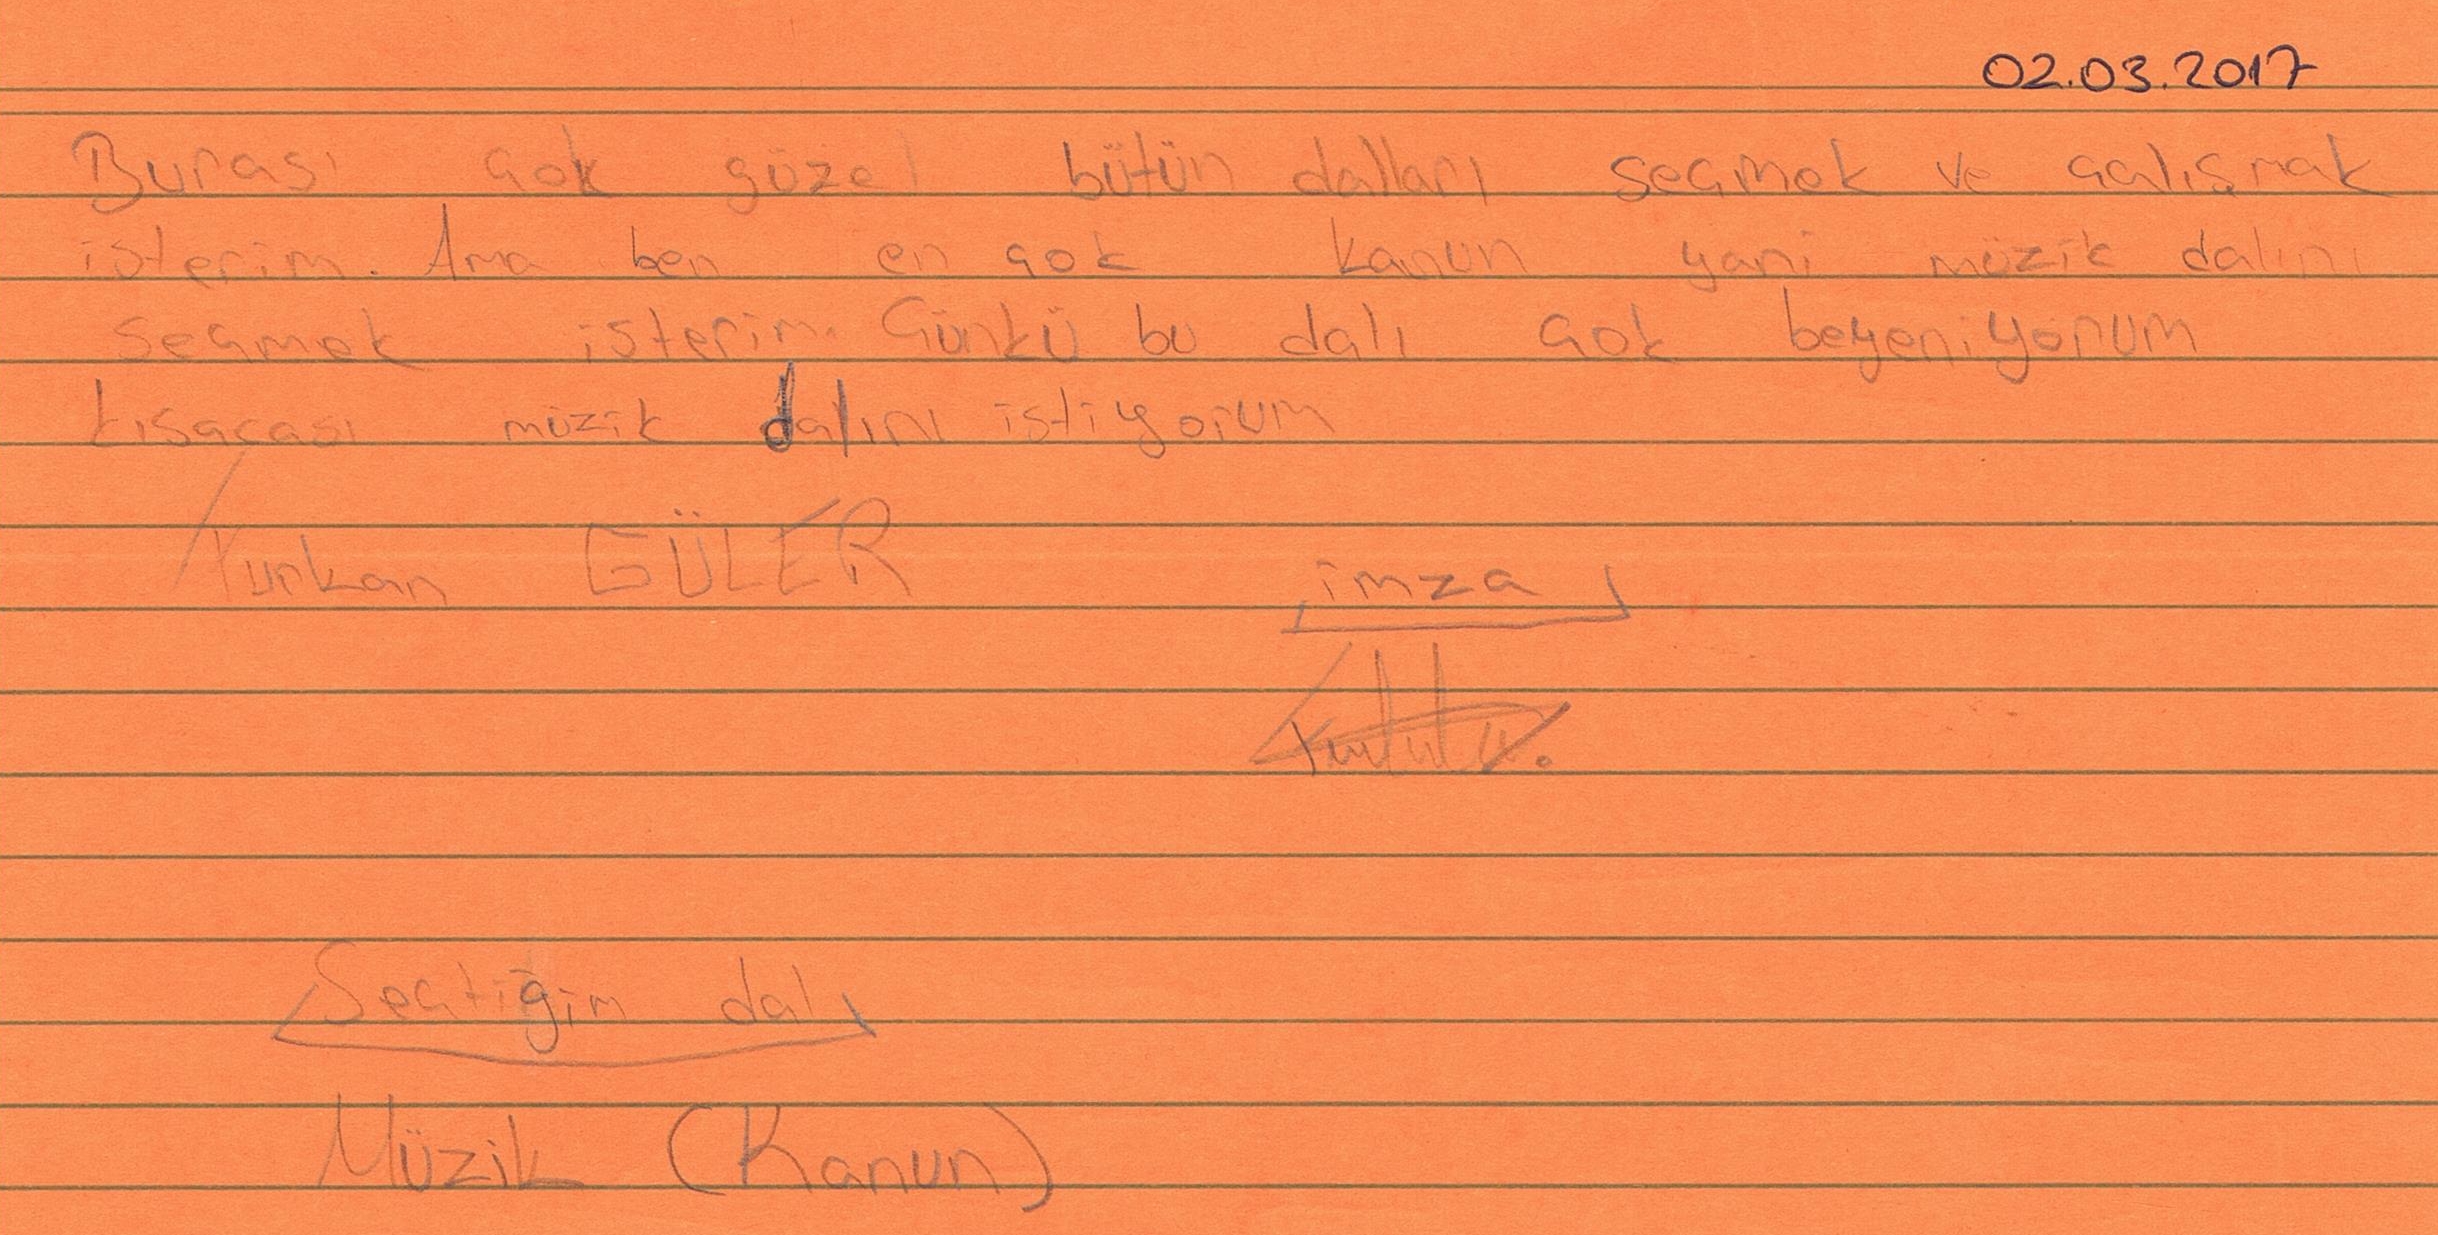 02.03.2017
Burası çok güzel bütün dalları seçmek ve çalışmak
isterim. Ama ben en çok kanun yani müzik dalını
seçmek isterim. Çünkü bu dalı çok beyeniyorum
kısacası müzik dalını istiyorum
Nurkan GÜLER
imza
Seçtiğim dal
Müzik (Kanun)